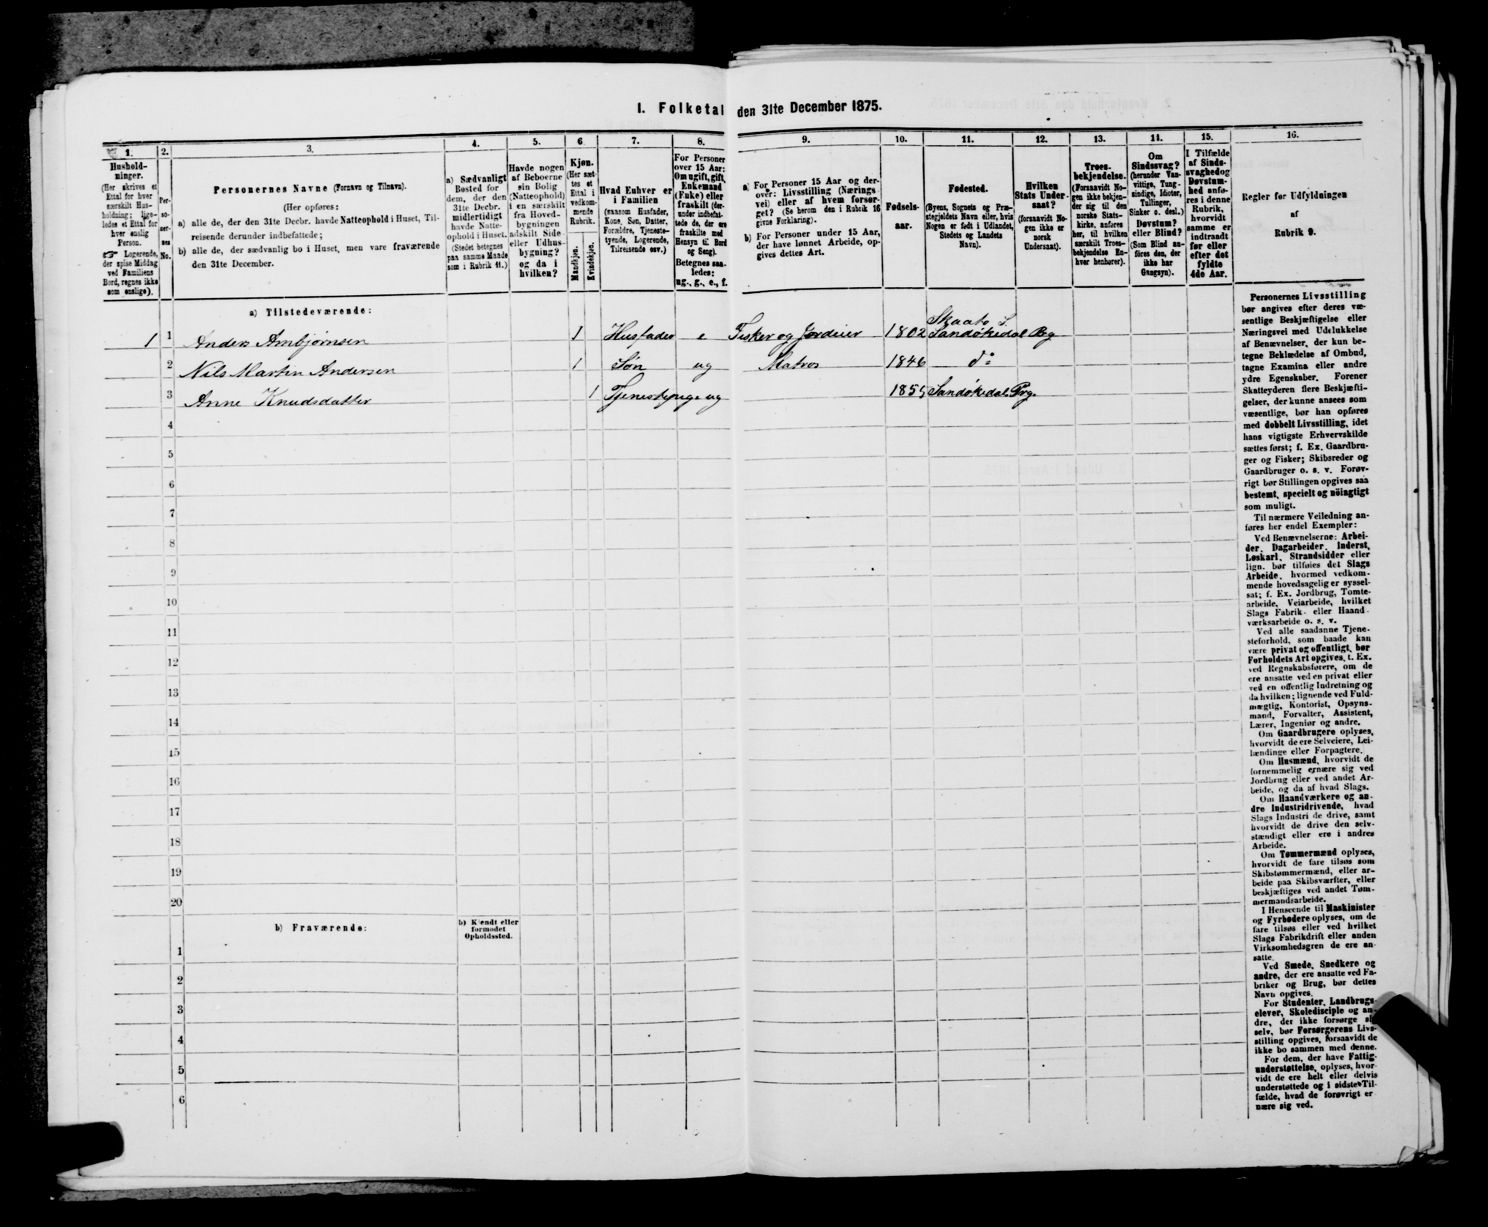 I. Folketal den 31te December 1875.
1.
Hushold-
ninger.
(Her skrives et
Ettal for hver
særskilt Hus-
holdning; lige-
ledes et Ettal for
hver enslig
Person.
☞ Logerende,
der spise Middag
ved Familiens
Bord, regnes ikke
som enslige).
2.
Per-
so-
ner-
nes
No.
3.
Personernes Navne (Fornavn og Tilnavn).
(Her opføres:
a) alle de, der den 31te Decbr. havde Natteophold i Huset, Til-
reisende derunder indbefattede;
b) alle de, der sædvanlig bo i Huset, men vare fraværende
den 31te December.
4.
a) Sædvanligt
Bosted for
dem, der den
31te Decbr.
midlertidigt
havde Natte-
ophold i Huset.
(Stedet betegnes
paa samme Maade
som i Rubrik 11.)
5.
Havde nogen
af Beboerne
sin Bolig
(Natteophold)
i en særskilt
fra Hoved-
bygningen
adskilt Side-
eller Udhus-
bygning?
og da i
hvilken?
6.
Kjøn.
(Her sæt-
tes et
Ettal i
vedkom-
mende
Rubrik.
Mandkjøn.
Kvindekjøn.
7.
Hvad Enhver er
i Familien
(saasom Husfader,
Kone, Søn, Datter,
Forældre, Tjeneste-
tyende, Logerende,
Tilreisende osv.)
8.
For Personer
over 15 Aar:
Om ugift, gift,
Enkemand
(Enke) eller
fraskilt (der-
under indbefat-
tede de, der ere
fraskilte med
Hensyn til Bord
og Seng).
Betegnes saa-
ledes:
ug., g., e., f.
9.
a) For Personer 15 Aar og der-
over: Livsstilling (Nærings-
vei) eller af hvem forsør-
get? (Se herom den i Rubrik 16
givne Forklaring).
b) For Personer under 15 Aar,
der have lønnet Arbeide, op-
gives dettes Art.
10.
Fødsels-
aar.
11.
Fødested.
(Byens, Sognets og Præ-
stegjeldets Navn eller, hvis
Nogen er født i Udlandet,
Stedets og Landets
Navn).
12.
Hvilken
Stats Under-
saat?
(forsaavidt No-
gen ikke er
norsk
Undersaat).
13.
Troes-
bekjendelse.
(Forsaavidt No-
gen ikke bekjen-
der sig til den
norske Stats-
kirke, anføres
her, til hvilken
særskilt Troes-
bekjendelse En-
hver henhører).
11.
Om
Sindssvag?
(herunder Van-
vittige, Tung-
sindige, Idioter,
Tullinger,
Sinker o. desl.)
Døvstum?
eller Blind?
(Som Blind an-
føres den, der
ikke har
Gangsyn).
15.
I Tilfælde
af Sinds-
svaghed og
Døvstum-
hed anfø-
res i denne
Rubrik,
hvorvidt
samme er
indtraadt
før eller
efter det
fyldte
4de Aar.
16.
Regler for Udfyldningen
af
Rubrik 9.
a) Tilstedeværende:
1 1 Anders Arnbjørnsen 1 Husfader e Fisker og Jordeier 1802 Skaatø S. Sandøkedal Prg
2 Nils Martin Andersen 1 Søn ug Matros 1846 do
3 Anne Knudsdatter 1 Tjenestepige ug 1855 Sandøkedal Prg.
4
5
6
7
8
9
10
11
12
13
14
15
16
17
18
19
20
b) Fraværende:
b) Kjendt eller
formodet
Opholdssted.
1
2
3
4
5
6
Personernes Livsstilling
bør angives efter deres væ-
sentlige Beskjæftigelse eller
Næringsvei med Udelukkelse
af Benævnelser, der kun be-
tegne Beklædelse af Ombud,
tagne Examina eller andre
ydre Egenskaber. Forener
Skatteyderen flere Beskjæfti-
gelser, der kunne ansees som
væsentlige, bør han opføres
med dobbelt Livsstilling, idet
hans vigtigste Erhvervskilde
sættes først; f. Ex. Gaardbru-
ger og Fisker; Skibsreder og
Gaardbruger o. s. v. Forøv-
rigt bør Stillingen opgives saa
bestemt, specielt og nöiagtigt
som muligt.
Til nærmere Veiledning an-
føres her endel Exempler:
Ved Benævnelserne: Arbei-
der, Dagarbeider, Inderst,
Løskarl, Strandsidder eller
lign. bør tilføies det Slags
Arbeide, hvormed vedkom-
mende hovedsagelig er syssel-
sat; f. Ex. Jordbrug, Tomte-
arbeide, Veiarbeide, hvilket
Slags Fabrik- eller Haand-
værksarbeide o. s. v.
Ved alle saadanne Tjene-
steforhold, som baade kan
være privat og offentligt, bør
Forholdets Art opgives, t. Ex.
ved Regnskabsførere, om de
ere ansatte ved en privat eller
ved en offentlig Indretning og
da hvilken; lignende ved Fuld-
mægtig, Kontorist, Opsyns-
mand, Forvalter, Assistent,
Lærer, Ingeniør og andre.
Om Gaardbrugere oplyses,
hvorvidt de ere Selveiere, Lei-
lændinge eller Forpagtere.
Om Husmænd, hvorvidt de
fornemmelig ernære sig ved
Jordbrug eller ved andet Ar-
beide, og da af hvad Slags.
Om Haandværkere og an-
dre Industridrivende, hvad
Slags Industri de drive, samt
hvorvidt de drive den selv-
stændigt eller ere i andres
Arbeide.
Om Tømmermænd oplyses,
hvorvidt de fare tilsøs som
Skibstømmermænd, eller ar-
beide paa Skibsværfter, eller
beskjæftiges ved andet Tøm-
mermandsarbeide.
I Henseende til Maskinister
og Fyrbødere oplyses, om de
fare tilsøs eller ved hvilket
Slags Fabrikdrift eller anden
Virksomhedsgren de ere an-
satte.
Ved Smede, Snedkere og
andre, der ere ansatte ved Fa-
briker og Brug, bør dettes
Navn opgives.
For Studenter, Landbrugs-
elever, Skoledisciple og an-
dre, der ikke forsørge sig
selv, bør Forsørgerens Livs-
stilling opgives, forsaavidt de
ikke bo sammen med denne.
For dem, der have Fattig-
understøttelse, oplyses, hvor-
vidt de ere helt eller delvis
understøttede og i sidste Til-
fælde, hvad de forøvrigt er
nære sig ved.